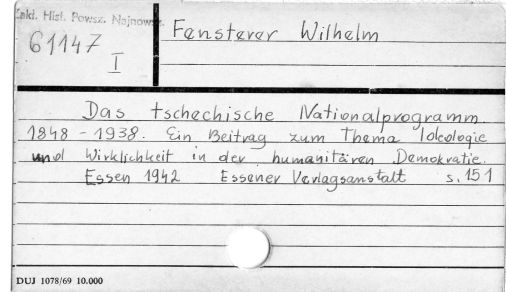 Zakł. Hist. Powsz. Najnowsz.
61147
I
Fensterer Wilhelm
Das tschechische Nationalprogramm
1848 - 1938. Ein Beitrag zum Thema Ideologie
und Wirklichkeit in der humanitären Demokratie.
Essen 1942 Essener Verlagsanstalt s. 151
DUJ 1078/69 10.000